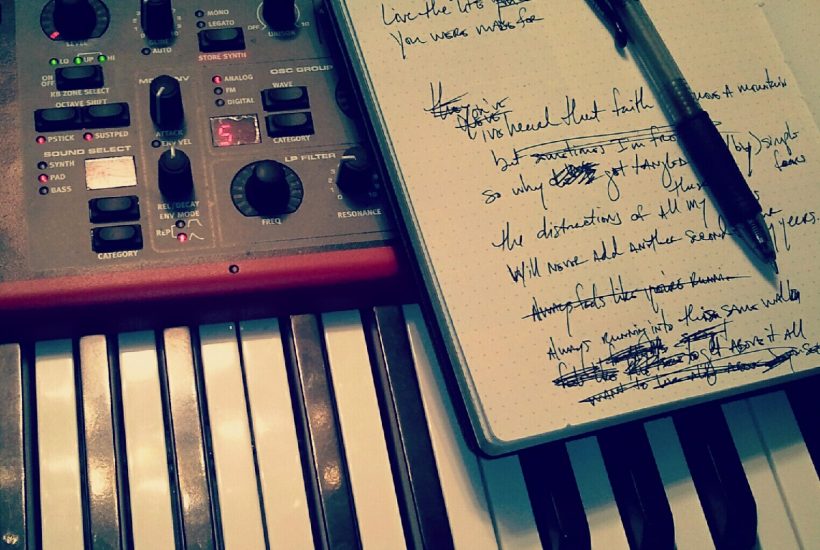 LEVEL
LO UP HI
ON
OFF
KB ZONE SELECT
OCTAVE SHIFT
PSTICK SUSTPED
SOUND SELECT
SYNTH
PAD
BASS
CATEGORY
AUTO
MONO
LEGATO
STORE SYNTH
OFF 10
ATTACK
ENV VEL
REL/DECAY
ENV MODE
REP
OSC GROUP
ANALOG
FM
DIGITAL
WAVE
5
CATEGORY
LP FILTER
FREQ
RESONANCE
Live the life
You were made for
They
you've
I've heard that faith moves A mountain
but sometimes I'm
so why got tangled (by) simple
fears
the distractions of all my
Will never add another second years.
Always feels like you're Runnin
Always Running into those same walls
to get above it all
want to